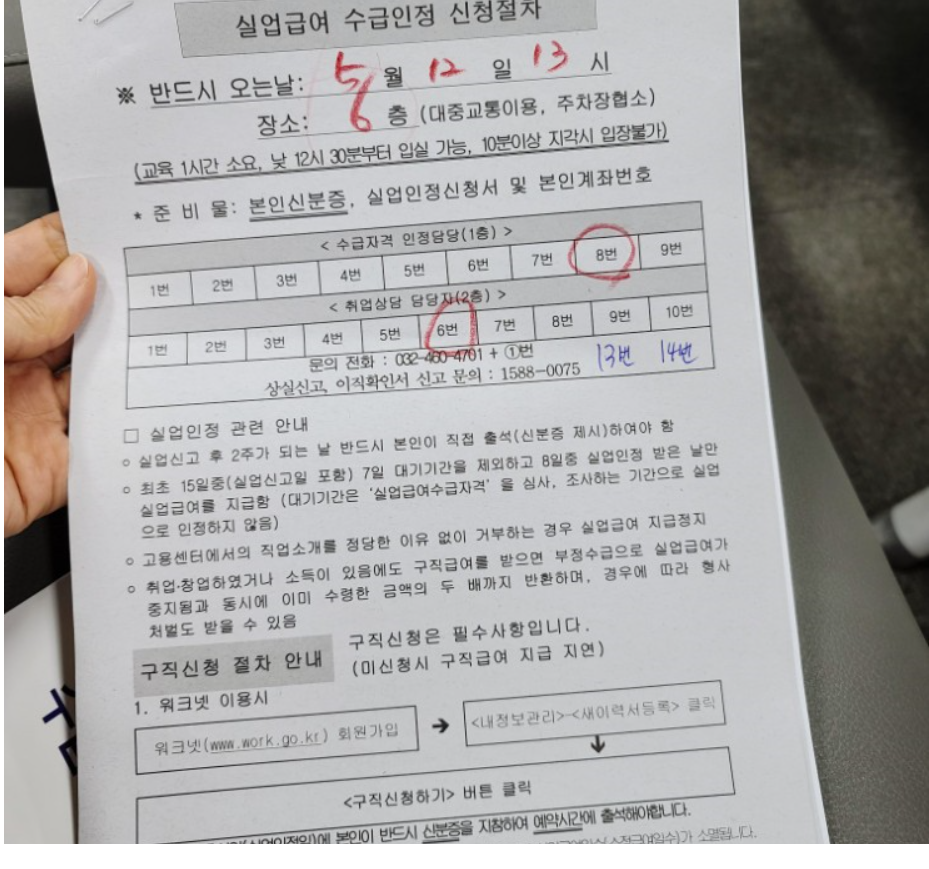 실업급여 수급인정 신청절차
※ 반드시 오는날: 5 월 12 일 13 시
장소: 6 층 (대중교통이용, 주차장협소)
(교육 1시간 소요, 낮 12시 30분부터 입실 가능, 10분이상 지각시 입장불가)
* 준 비 물: 본인신분증, 실업인정신청서 및 본인계좌번호
< 수급자격 인정담당(1층) >
1번 2번 3번 4번 5번 6번 7번 8번 9번
< 취업상담 담당자(2층) >
1번 2번 3번 4번 5번 6번 7번 8번 9번 10번
문의 전화 : 032-460-4701 + ①번 13번 14번
상실신고, 이직확인서 신고 문의 : 1588-0075
□ 실업인정 관련 안내
○ 실업신고 후 2주가 되는 날 반드시 본인이 직접 출석(신분증 제시)하여야 함
○ 최초 15일중(실업신고일 포함) 7일 대기기간을 제외하고 8일중 실업인정 받은 날만
실업급여를 지급함 (대기기간은 '실업급여수급자격' 을 심사, 조사하는 기간으로 실업
으로 인정하지 않음)
○ 고용센터에서의 직업소개를 정당한 이유 없이 거부하는 경우 실업급여 지급정지
○ 취업·창업하였거나 소득이 있음에도 구직급여를 받으면 부정수급으로 실업급여가
중지됨과 동시에 이미 수령한 금액의 두 배까지 반환하며, 경우에 따라 형사
처벌도 받을 수 있음
구직신청 절차 안내 구직신청은 필수사항입니다.
(미신청시 구직급여 지급 지연)
1. 워크넷 이용시
워크넷(www.work.go.kr) 회원가입 → <내정보관리>-<새이력서등록> 클릭
<구직신청하기> 버튼 클릭
본인이 반드시 신분증을 지참하여 예약시간에 출석해야합니다.
소멸됩니다.